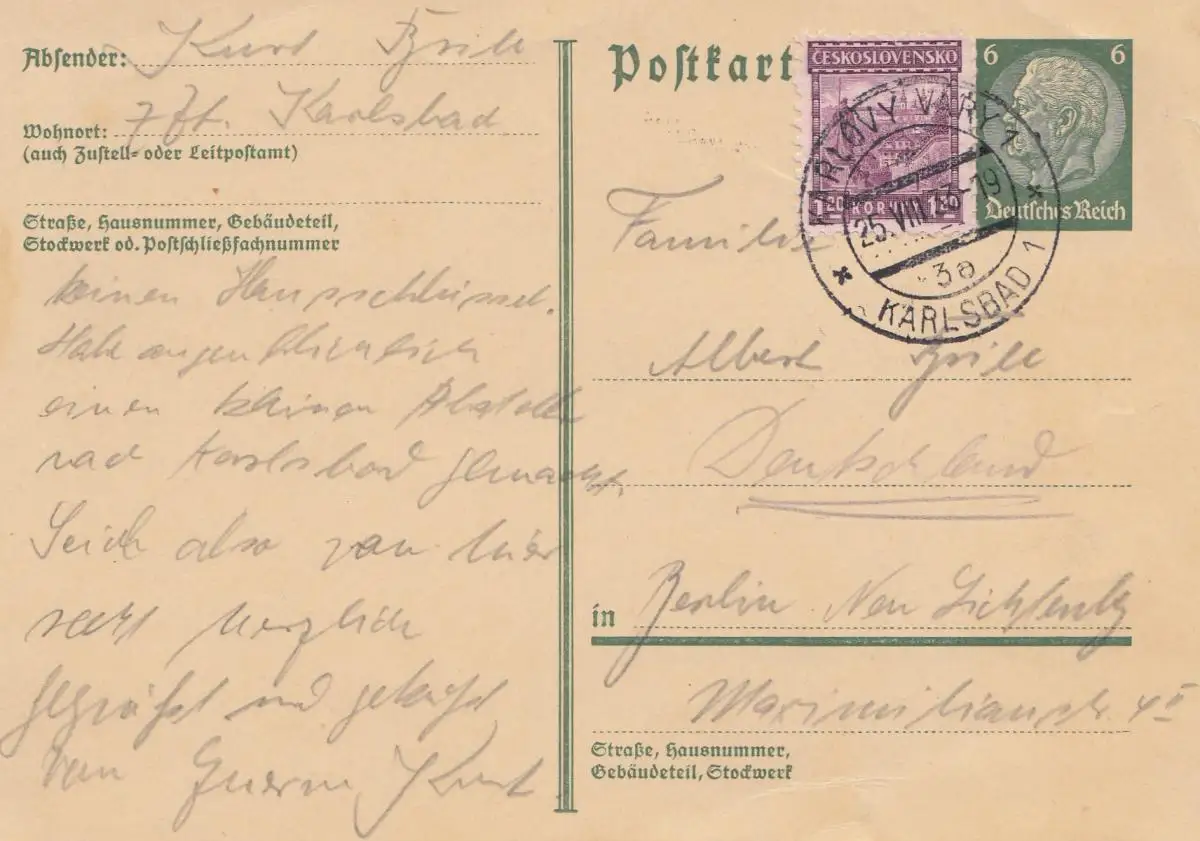 Absender: Kurt Brill
z. Zt. Karlsbad
Wohnort:
(auch Zustell- oder Leitpostamt)
Straße, Hausnummer, Gebäudeteil,
Stockwerk od. Postschließfachnummer
keinen Hausschlüssel.
Habe augenblicklich
einen kleinen Abstecher
nach Karlsbad gemacht.
Seid also von hier
recht herzlich
gegrüßt und geküsst
von Eurem Kurt.
Postkarte
ČESKOSLOVENSKO
1.20 KORUNA 1.20
6 6
Deutsches Reich
KARLOVY VARY 1
25.VIII.33-19
3a
KARLSBAD 1
Familie
Albert Brill
Deutschland
in Berlin Neu Lichtenbg
Maximilianstr. 4 II
Straße, Hausnummer,
Gebäudeteil, Stockwerk